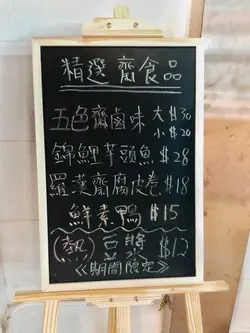 精選齋食品
五色齋鹵味 大$30
小$20
錦鯉芋頭魚 $28
羅漢齋腐皮卷 $18
鮮素鴨 $15
(熱) 豆漿 $12
《期間限定》